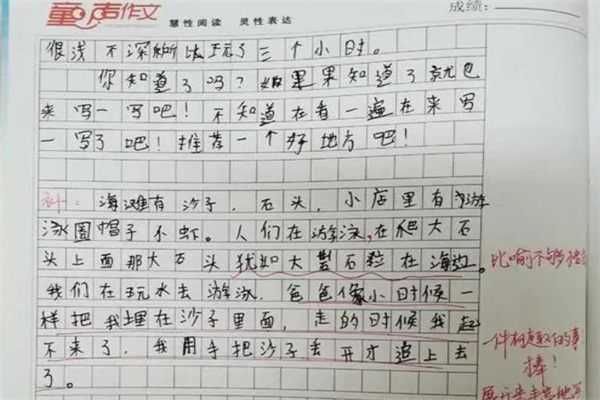 童声作文 慧性阅读 灵性表达 成绩:
很浅不深所以玩了三个小时。
你知道了吗?如果果知道了就也
来写一写吧!不知道在看一遍在来写
一写了吧!推荐一个好地方吧!
补:海滩有沙子,石头,小店里有游
泳圈帽子不虾。人们在游泳,在爬大石
头上面那大石头犹如大石粒在海边。
我们在玩水去游泳,爸爸像小时候一
样把我埋在沙子里面,走的时候我起
不来了,我用手把沙子丢开才追上去
了。
比喻不够恰
一件有趣的事
棒!
展开来